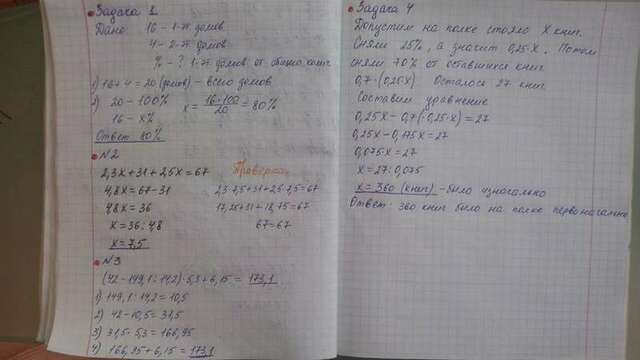 Задача 1
Дано: 16 - 1-эт домов
4 - 2-эт домов
% - ? 1-эт домов от общего колич
1) 16+4=20 (домов) - всего домов
2) 20 - 100%
16 - х%
x = 16·100/20 = 80%
Ответ 80%
№2
2,3x+31+2,5x=67
4,8x=67-31
4,8x=36
x=36:4,8
x=7,5
Проверка:
2,3·7,5+31+2,5·7,5=67
17,25+31+18,75=67
67=67
№3
(42-149,1:14,2)·5,3+6,15=173,1
1) 149,1:14,2=10,5
2) 42-10,5=31,5
3) 31,5·5,3=166,95
4) 166,95+6,15=173,1
Задача 4
Допустим на полке стояло X книг.
Сняли 25%, а значит 0,25·X. Потом
сняли 70% от оставшихся книг
0,7·(0,25X) Осталось 27 книг
Составим уравнение
0,25X-0,7(·0,25·X)=27
0,25X-0,175X=27
0,075·X=27
X=27:0,075
X=360 (книг) - было изначально
Ответ: 360 книг было на полке первоначально